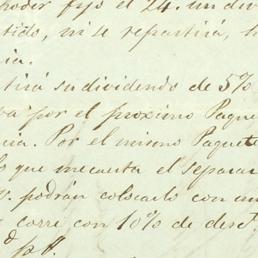 poder fijo el 24. un divi
tido, ni se repartirá, h
ia.
tirá su dividendo de 5%
va por el proximo Paque
cia. Por el mismo Paquete
lo que me cuesta el separar
v. podrán colocarlo con un
corre con 10% de desc.to
p.r